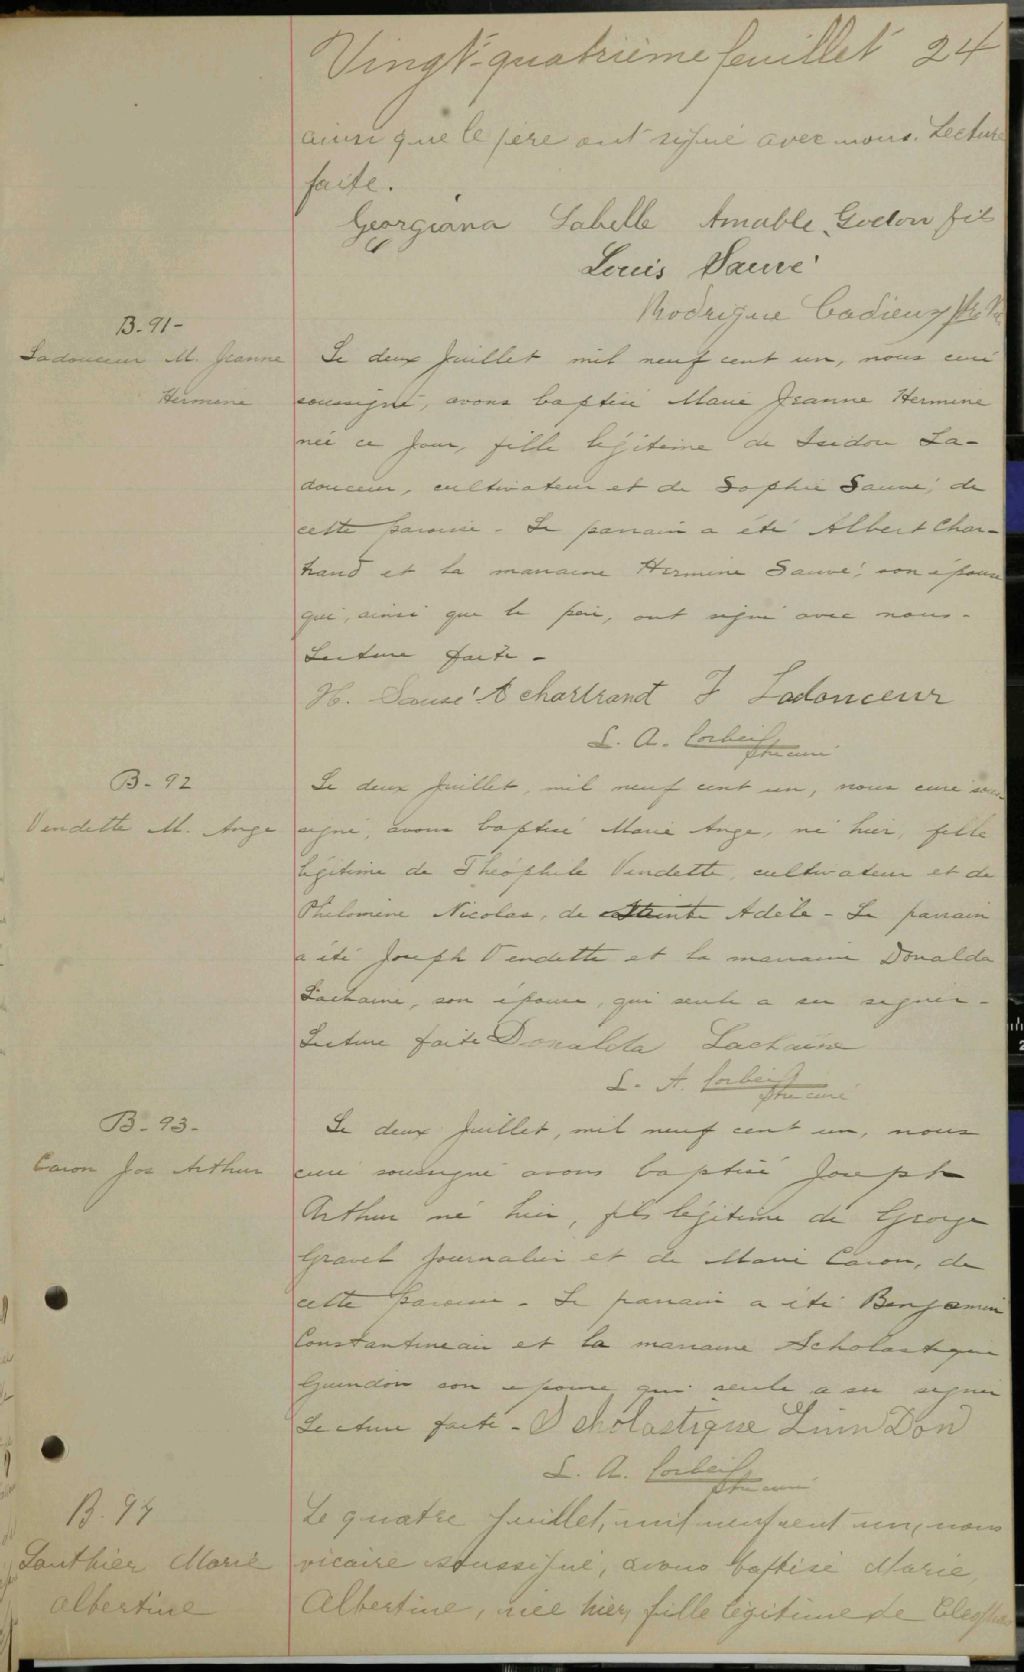 Vingt-quatrième feuillet 24
ainsi que le père ont signé avec nous. Lecture
faite.
Georgiana Labelle Amable Godon fils
Louis Sauvé
Rodrigue Cadieux Ptre Vic
B-91-
Ladouceur M. Jeanne
Hermine
Le deux Juillet mil neuf cent un, nous curé
soussigné, avons baptisé Marie Jeanne Hermine
née ce jour, fille légitime de Isidore La-
douceur, cultivateur et de Sophie Sauvé, de
cette paroisse - Le parrain a été Albert Char-
trand et la marraine Hermine Sauvé, son épouse
qui, ainsi que le père, ont signé avec nous -
Lecture faite -
H. Sauvé A chartrand I Ladouceur
L. A. Corbeil
Ptre curé
B-92
Vendette M. Ange
Le deux Juillet, mil neuf cent un, nous curé sous-
signé, avons baptisé Marie Ange, né hier, fille
légitime de Théophile Vendette, cultivateur et de
Philomène Nicolas, de Sainte Adèle - Le parrain
a été Joseph Vendette et la marraine Donalda
Lachaine, son épouse, qui seule a su signer -
Lecture faite Donalda Lachaine
L. A. Corbeil
Ptre curé
B-93-
Caron Jos Arthur
Le deux Juillet, mil neuf cent un, nous
curé soussigné avons baptisé Joseph
Arthur né hier, fils légitime de George
Gravel journalier et de Marie Caron, de
cette paroisse - Le parrain a été Benjamin
Constantineau et la marraine Scholastique
Guindon son épouse qui seule a su signer
Lecture faite - Scholastique Guin Don
L. A. Corbeil
Ptre curé
B. 94
Gauthier Marie
Albertine
Le quatre Juillet, mil neuf cent un, nous
vicaire soussigné, avons baptisé Marie,
Albertine, née hier, fille légitime de Cleophas